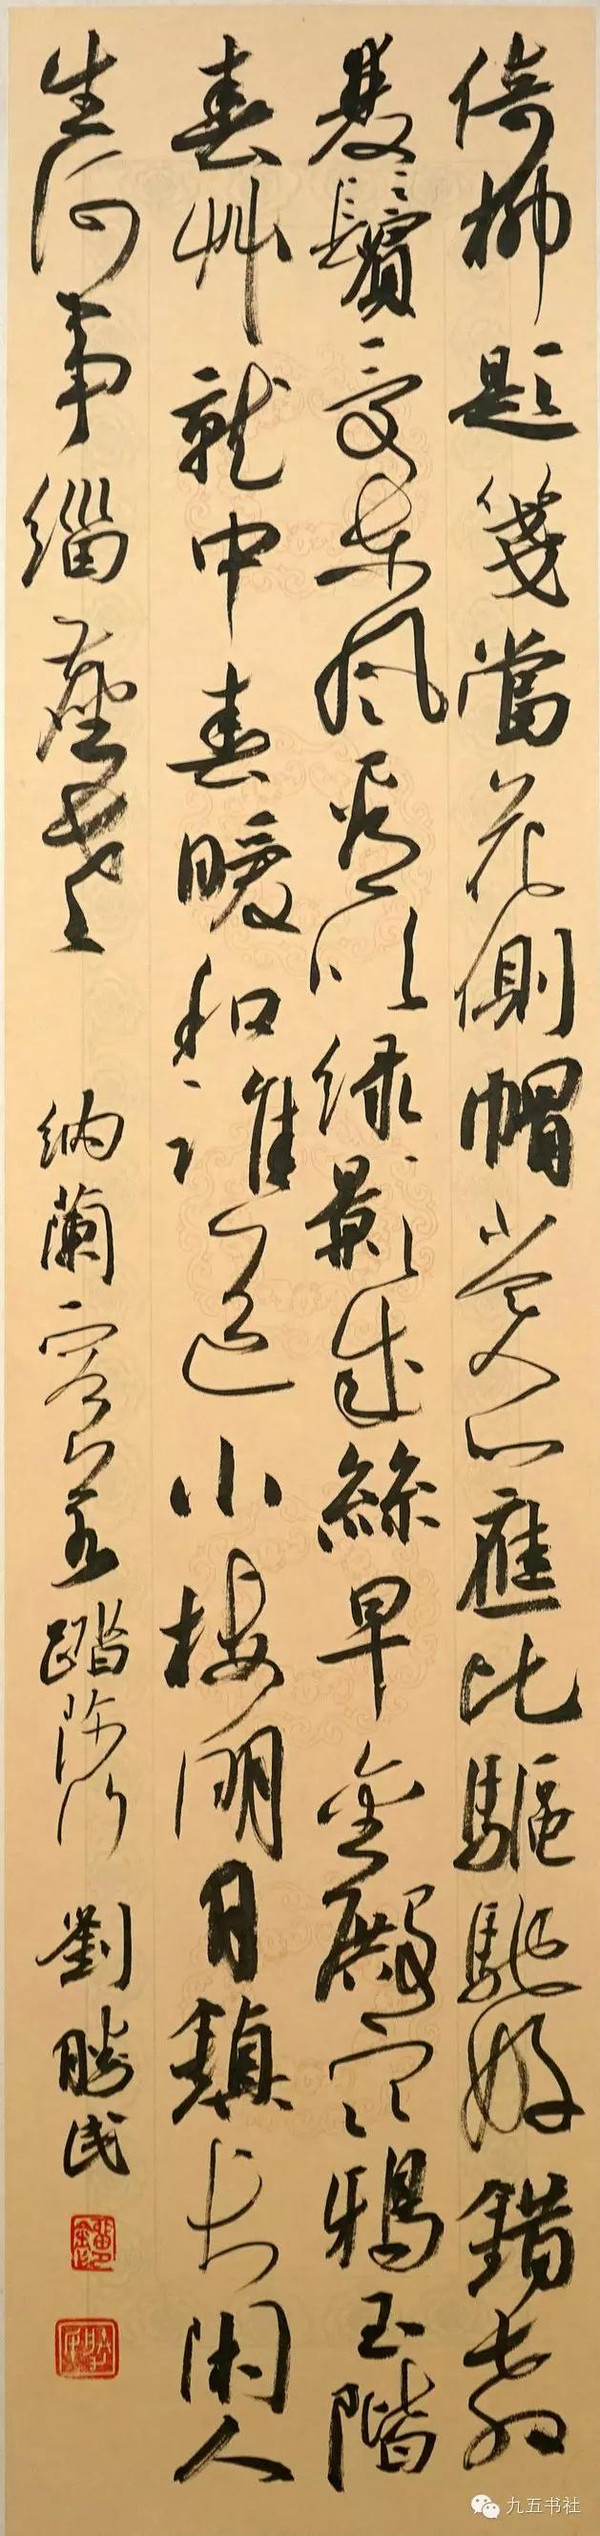 倚柳題箋當花側帽賞心應比驅馳好錯教
雙鬢受東風看吹綠影成絲早金殿寒鴉玉階
春艸就中春暖和誰道小樓明月鎮長閑人
生何事緇塵老
納蘭容若踏莎行 劉勝民
九五书社